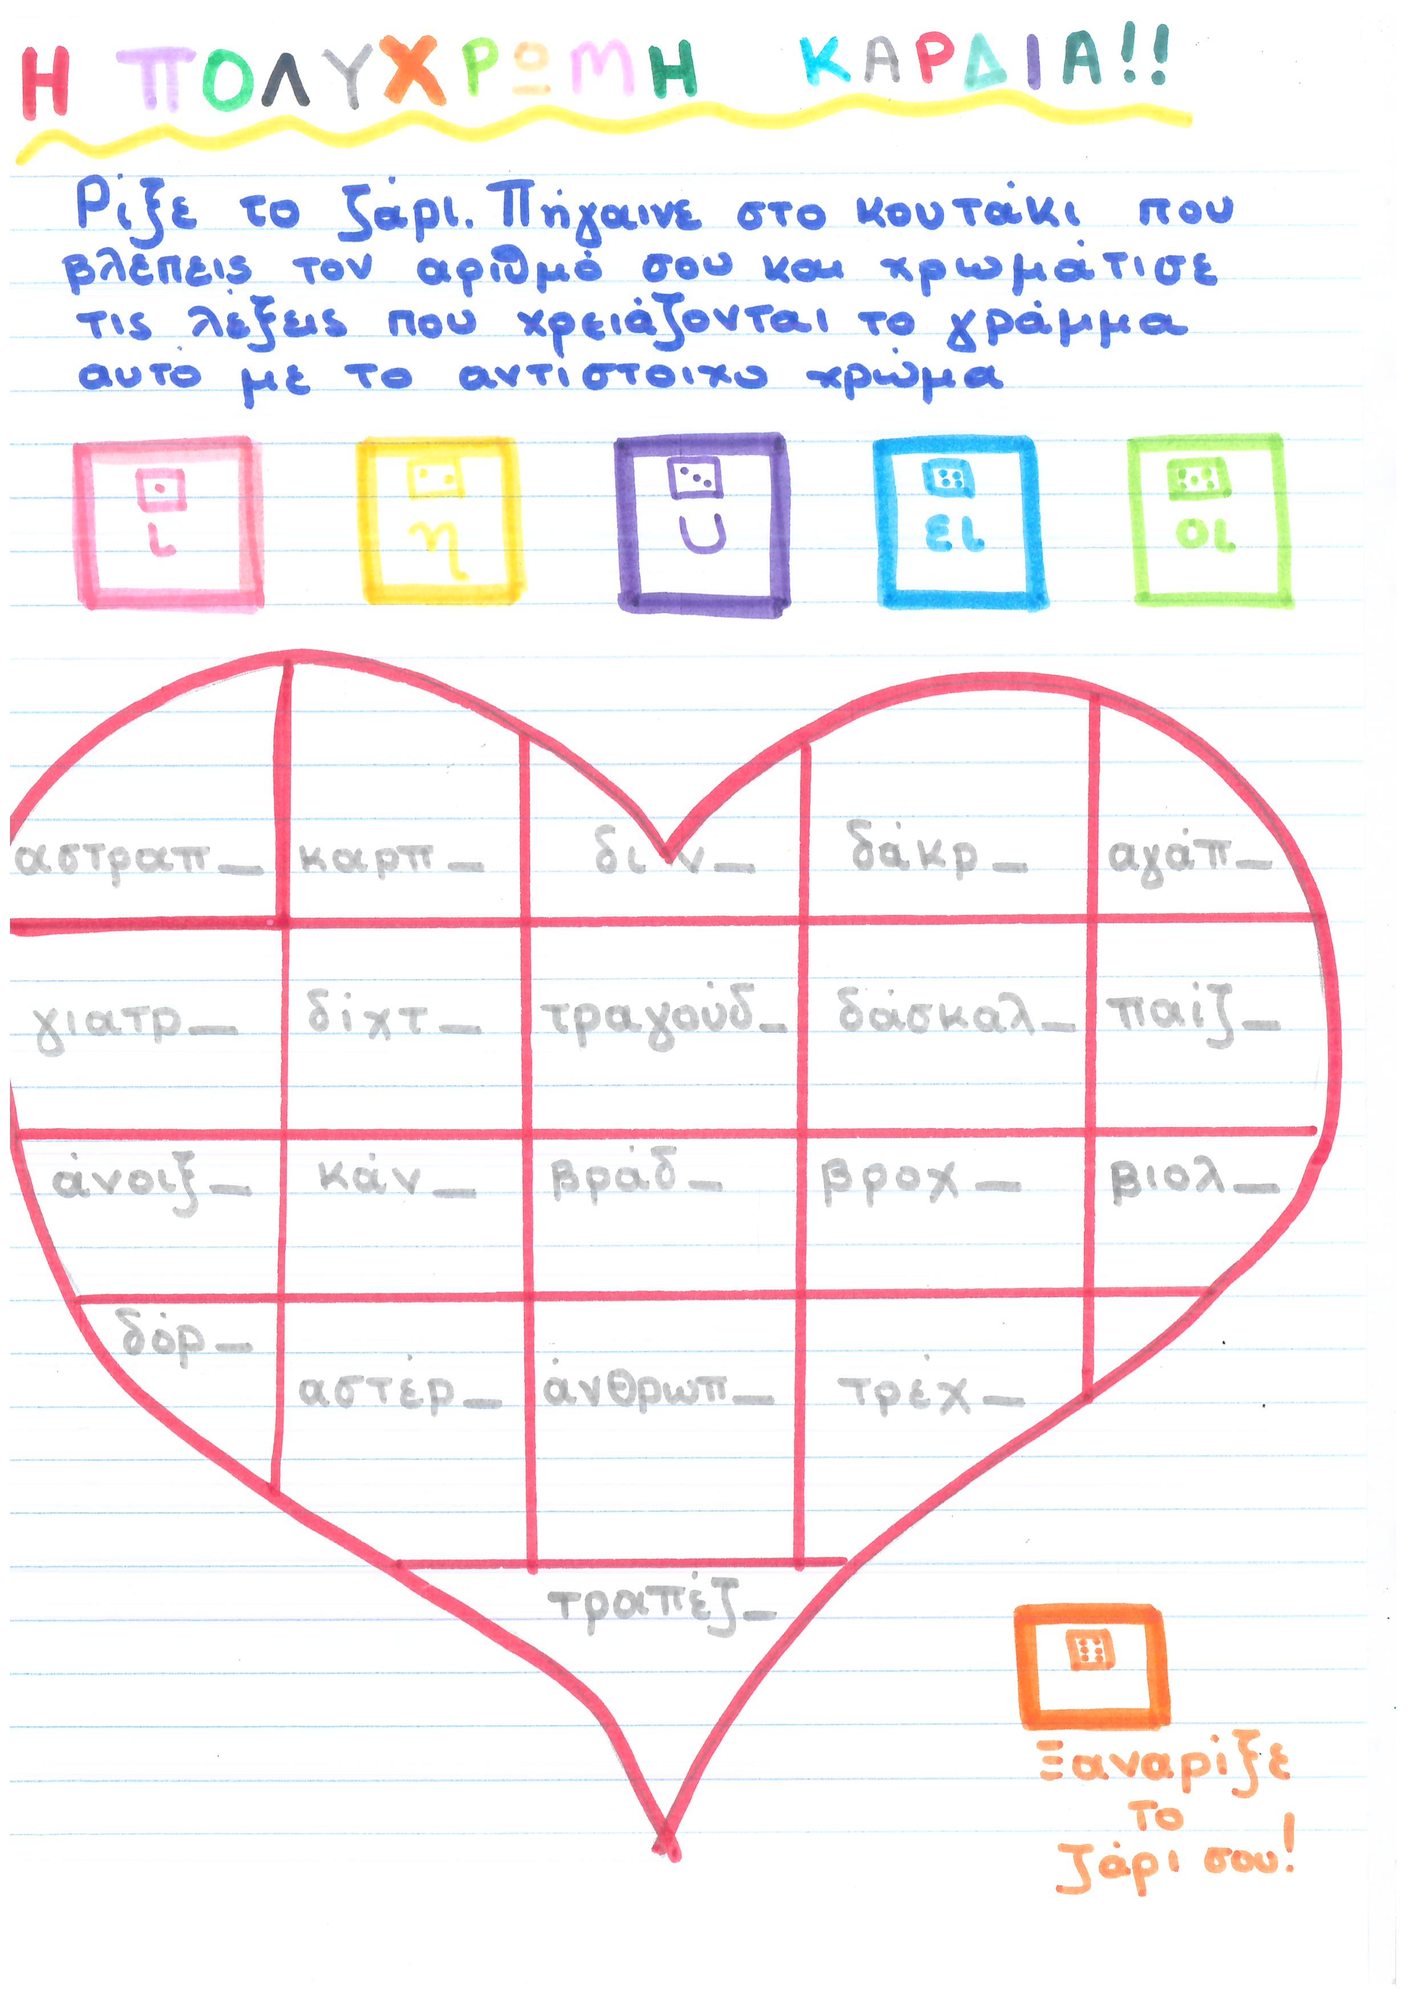 Η ΠΟΛΥΧΡΩΜΗ ΚΑΡΔΙΑ!!
Ρίξε το ζάρι. Πήγαινε στο κουτάκι που
βλέπεις τον αριθμό σου και χρωμάτισε
τις λέξεις που χρειάζονται το γράμμα
αυτό με το αντίστοιχο χρώμα
ι η υ ει οι
αστραπ_ καρπ_ διν_ δάκρ_ αγάπ_
γιατρ_ δίχτ_ τραγούδ_ δάσκαλ_ παίζ_
άνοιξ_ κάν_ βράδ_ βροχ_ βιολ_
δόρ_ αστέρ_ άνθρωπ_ τρέχ_
τραπέζ_
Ξαναρίξε
το
ζάρι σου!